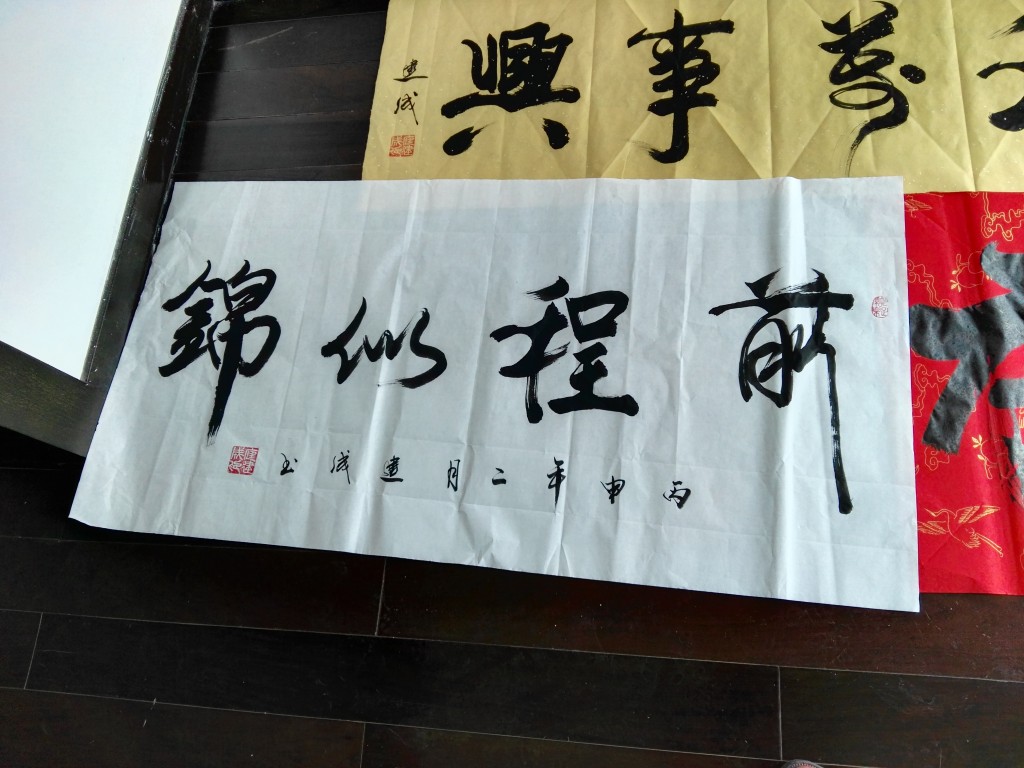 萬事興
建成
前程似錦
丙申年二月建成书